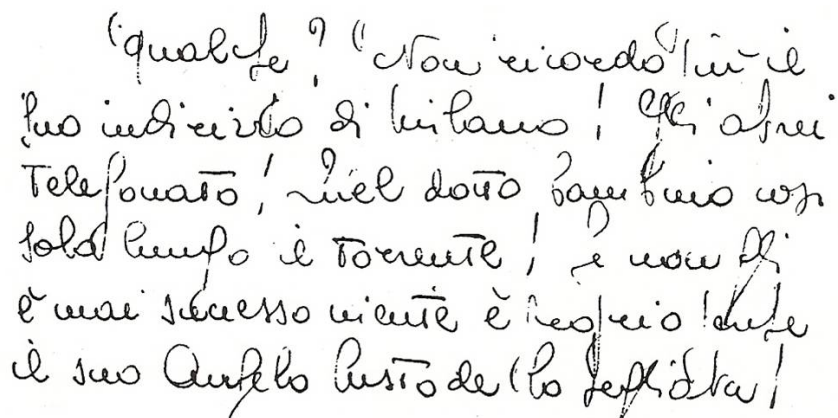 "qual'è"? "Non ricordo" più il
suo indirizzo di Milano! Gli avrei
Telefonato! Quel dotto bambino così
solo lungo il Torrente! E non gli
è mai successo niente è proprio che
il suo Angelo Custode lo